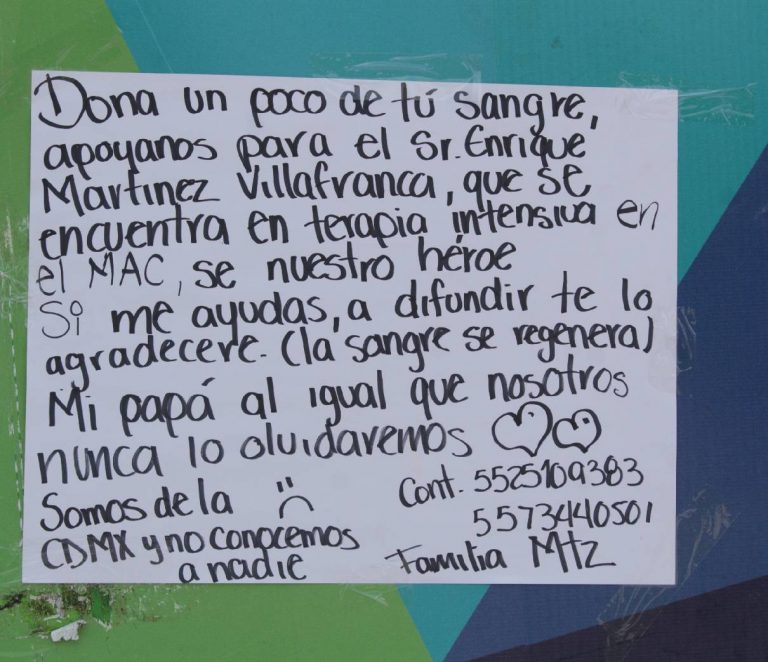 Dona un poco de tú sangre,
apoyanos para el Sr. Enrique
Martinez Villafranca, que se
encuentra en terapia intensiva en
el MAC, se nuestro héroe
Si me ayudas, a difundir te lo
agradecere. (la sangre se regenera)
Mi papá al igual que nosotros
nunca lo olvidaremos
Somos de la
CDMX y no conocemos
a nadie
Cont. 5525109383
5573440501
Familia Mtz